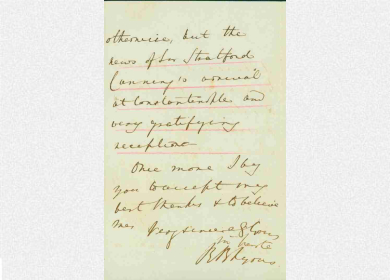 otherwise, but the
news of Sir Stratford
Canning's arrival
at Constantinople and
very gratifying
reception
Once more I beg
you to accept my
best thanks & to believe
me Very sincerely Yours
in haste
R B Lyons